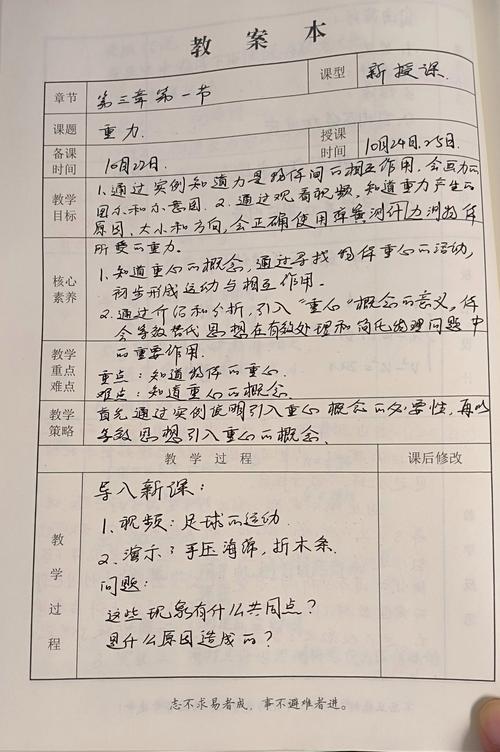 教案本
课型 新授课.
章节 第三章第一节
课题 重力.
备课时间 10月22日.
授课时间 10月24日.25日.
教学目标 1.通过实例知道力是物体间的相互作用.会画力的
图示和示意图.2.通过观看视频,知道重力产生的
原因、大小和方向,会正确使用弹簧测计力测物体
所受的重力.
核心素养 1.知道重心的概念,通过寻找物体重心的活动,
初步形成运动与相互作用.
2.通过介绍和分析,引入"重心"概念的意义,体
会等效替代思想在有效处理和简化物理问题中
的重要作用.
教学重点难点 重点:知道物体的重心.
难点:知道重心的概念.
教学策略 首先通过实例使明引入重心概念的必要性,再以
等效思想引入重心的概念.
教学过程 课后修改
教学过程
导入新课:
1.视频:足球的运动.
2.演示:手压海绵,折木条.
问题:
这些现象有什么共同点?
是什么原因造成的?
志不求易者成,事不避难者进。